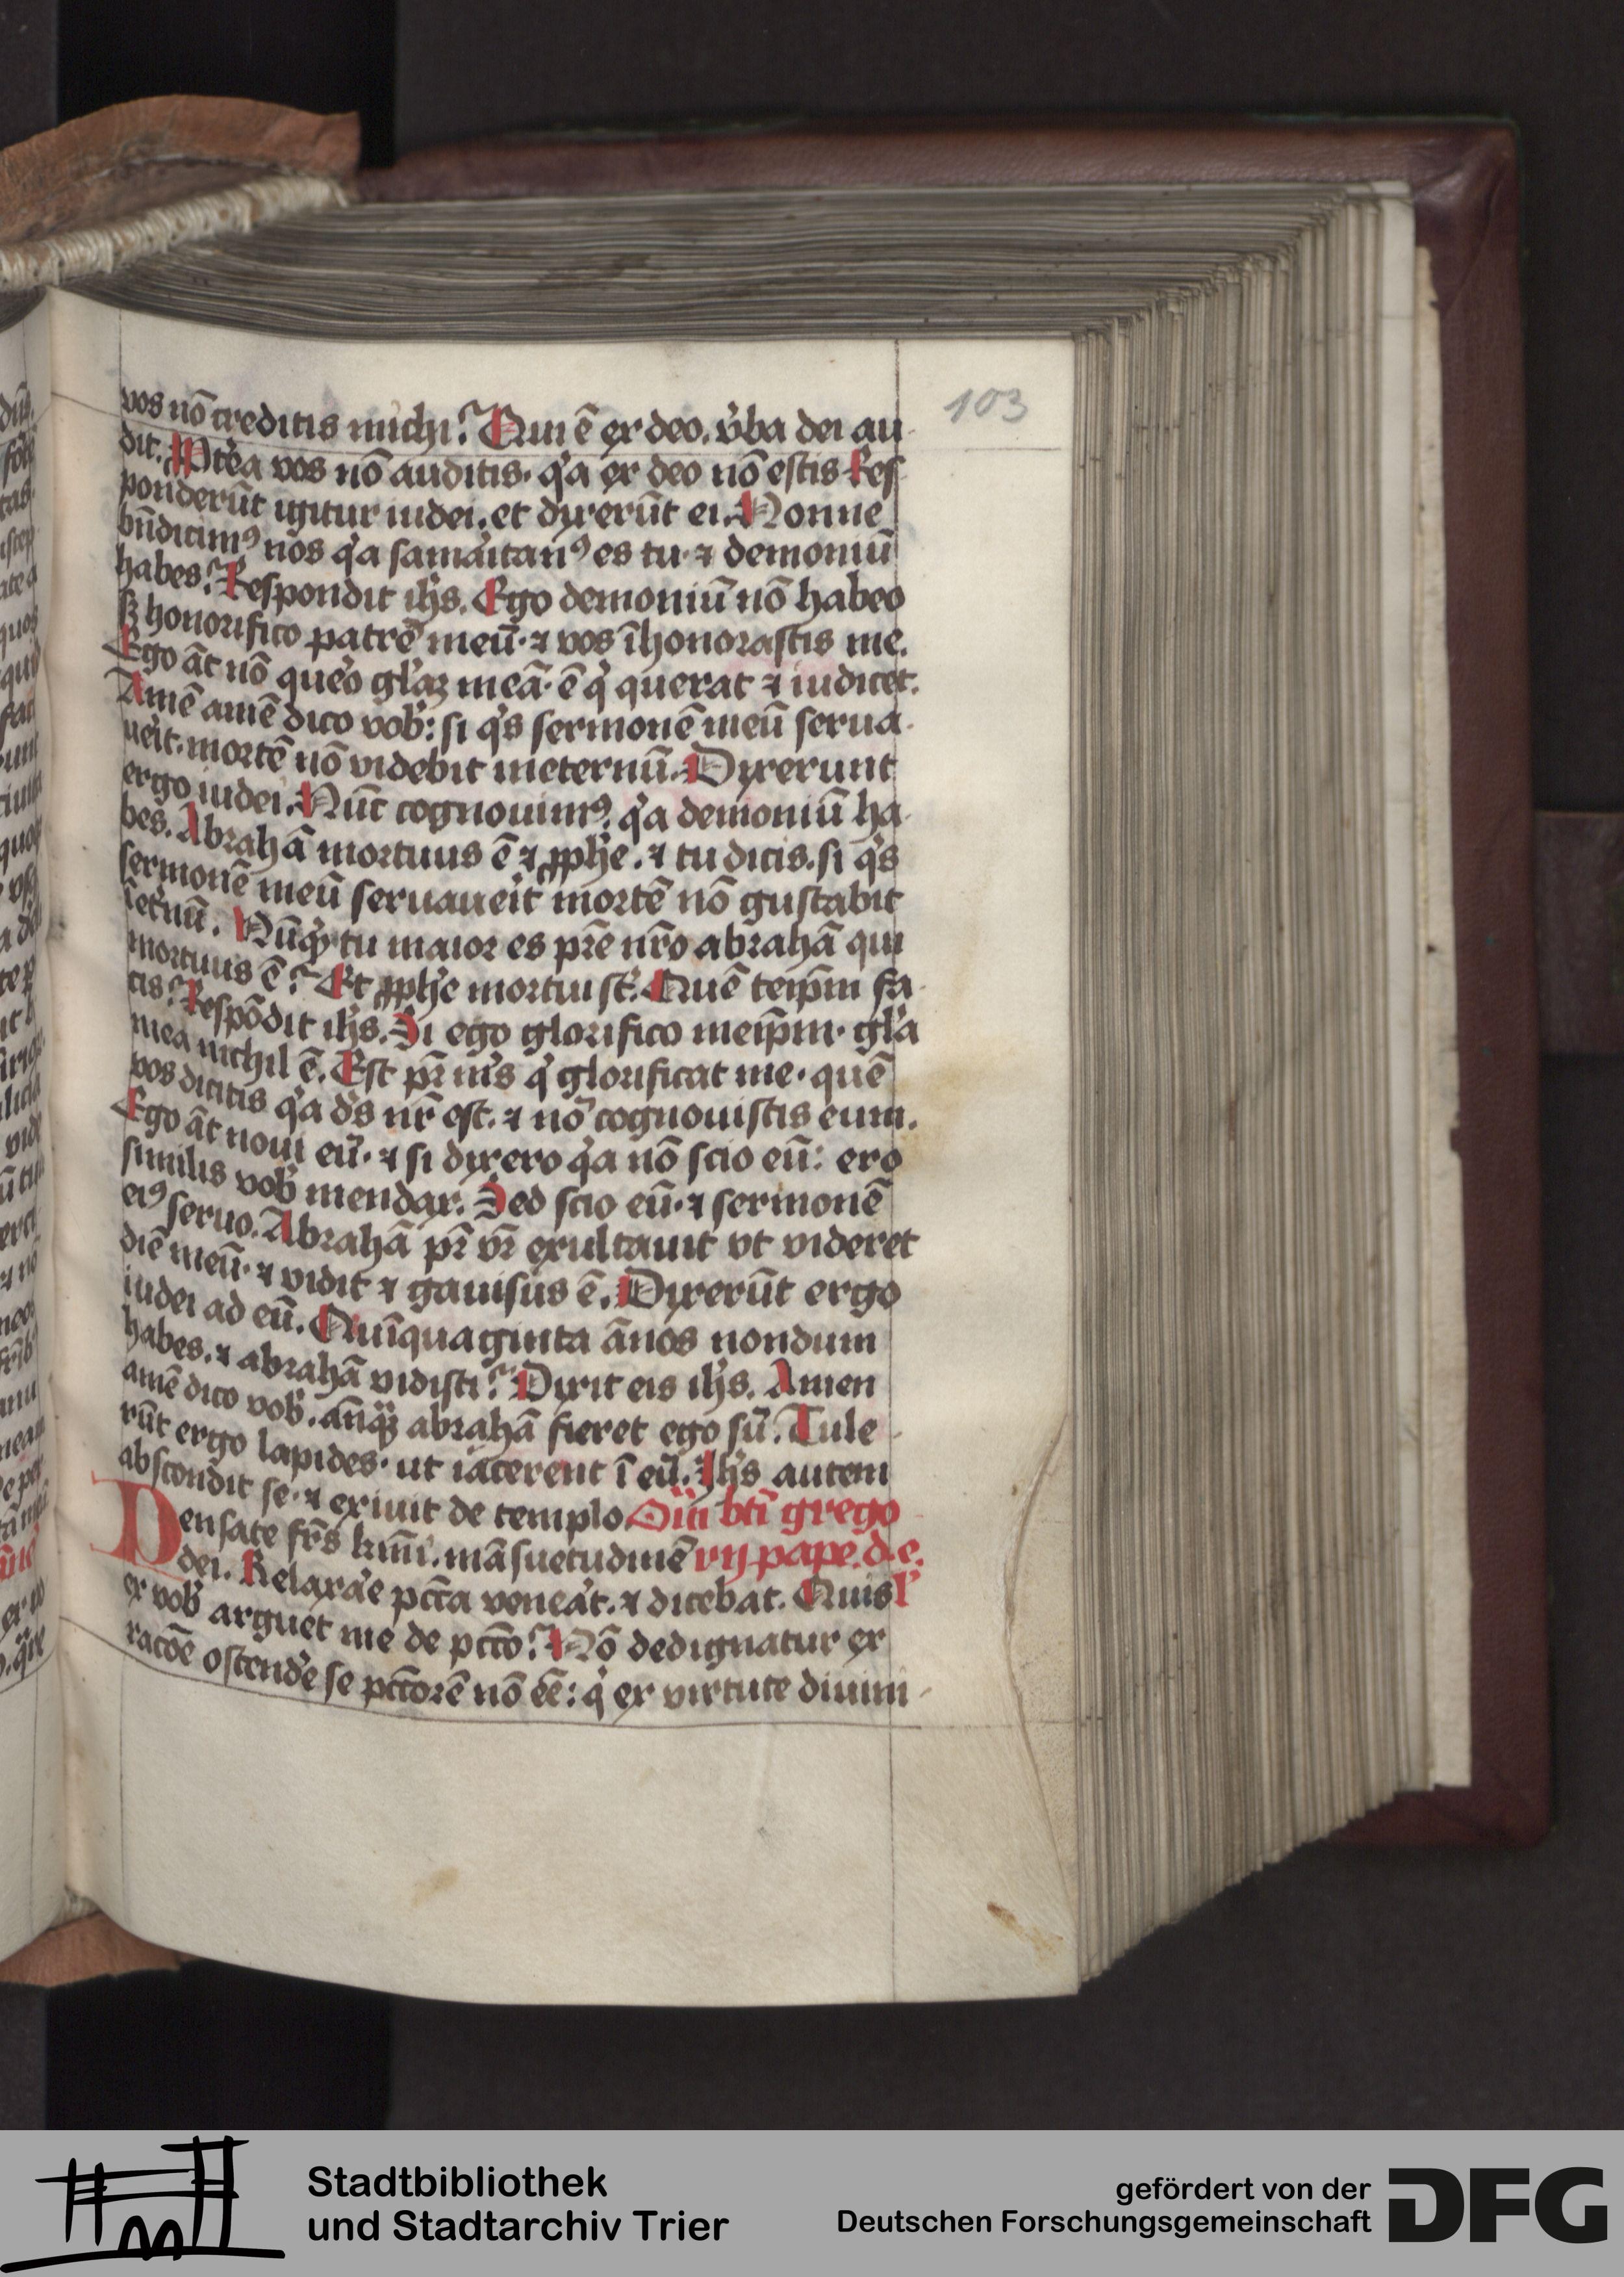 103
vos nō creditis michi? Qui ē ex deo. v̓ba dei au
dit. Ptēa vos nō auditis. q̓a ex deo nō estis Res
ponderūt igitur iudei. et dixerūt ei. Nonne
bn̄dicimꝰ nos q̓a samaitanꝰ es tu. ⁊ demoniū
habes? Respondit ihs̄. Ego demoniū nō habeo
sꝫ honorifico patrē meū. ⁊ vos īhonorastis me.
Ego āt nō que̓o gl̓aꝫ meā. ē q̓ querat ⁊ iudicet.
Amē amē dico vob̓: si q̓s sermonē meū serua
ue̓it. mortē nō videbit ineternū. Dixerunt
ergo iudei. Nūc cognouimꝰ. q̓a demoniū ha
bes. Abrahā mortuus ē ⁊ ꝓphe̓. ⁊ tu dicis. si q̓s
sermonē meū seruaue̓it mortē nō gustabit
īet̓nū. Nūq̓d tu maior es prē nr̄o abrahā qui
mortuus ē? Et ꝓphe̓ mortui st̓. Quē teip̄m fa
cis? Respōdit ihs̄. Si ego glorifico meip̄m. gl̓a
mea nichil ē. Est pr̄ m̓s q̓ glorificat me. quē
vos dicitis q̓a d̓s nr̄ est. ⁊ nō cognouistis eum.
Ego āt noui eū. ⁊ si dixero q̓a nō scio eū: ero
similis vob̓ mendax. Sed scio eū. ⁊ sermonē
eiꝰ seruo. Abrahā pr̄ vr̄ exultauit vt videret
diē meū. ⁊ vidit ⁊ gauisus ē. Dixerūt ergo
iudei ad eū. Quīquaginta ānos nondum
habes. ⁊ abrahā vidisti? Dixit eis ihs̄. Amen
amē dico vob̓. ānq̄ꝫ abrahā fieret ego sū. Tule
rūt ergo lapides. ut iacerent ī eū. Ihs̄ autem
abscondit se. ⁊ exiuit de templo. Om̄i bt̄i grego
Pensate fr̄s kmī. māsuetudinē rij pape. d. e.
dei. Relaxa̓e pcc̄a venea̓t. ⁊ dicebat. Quis l̓
ex vob̓ arguet me de pcc̄o? Nō dedignatur ex
racōe ostend̓e se pcc̄orē nō eē: q̓ ex virtute diuini
Stadtbibliothek
und Stadtarchiv Trier
gefördert von der
Deutschen Forschungsgemeinschaft
DFG